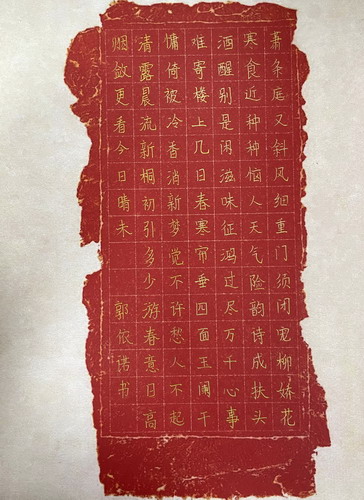 萧条庭又斜风细重门须闭宠柳娇花
寒食近种种恼人天气险韵诗成扶头
酒醒别是闲滋味征鸿过尽万千心事
难寄楼上几日春寒帘垂四面玉阑干
慵倚被冷香消新梦觉不许愁人不起
清露晨流新桐初引多少游春意日高
烟敛更看今日晴未 郭依诺书